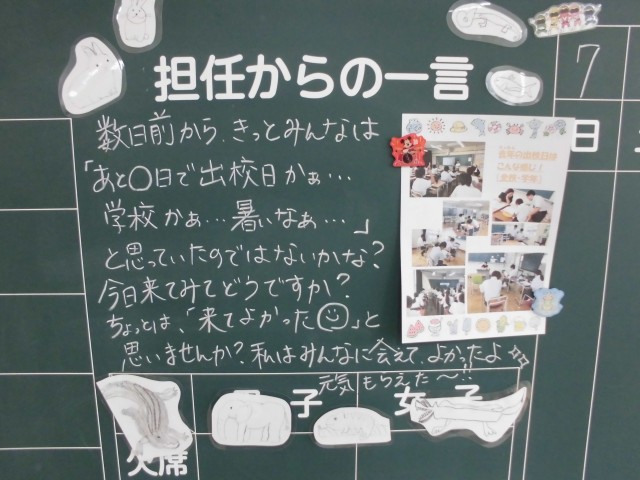 担任からの一言
数日前から、きっとみんなは
「あと〇日で出校日かぁ…
学校かぁ…暑いなぁ…」
と思っていたのではないかな?
今日来てみてどうですか?
ちょっとは、「来てよかった☺」と
思いませんか?私はみんなに会えて、よかったよ
元気もらえた〜!!
子
女子
欠席
7
日
こんな感じ!